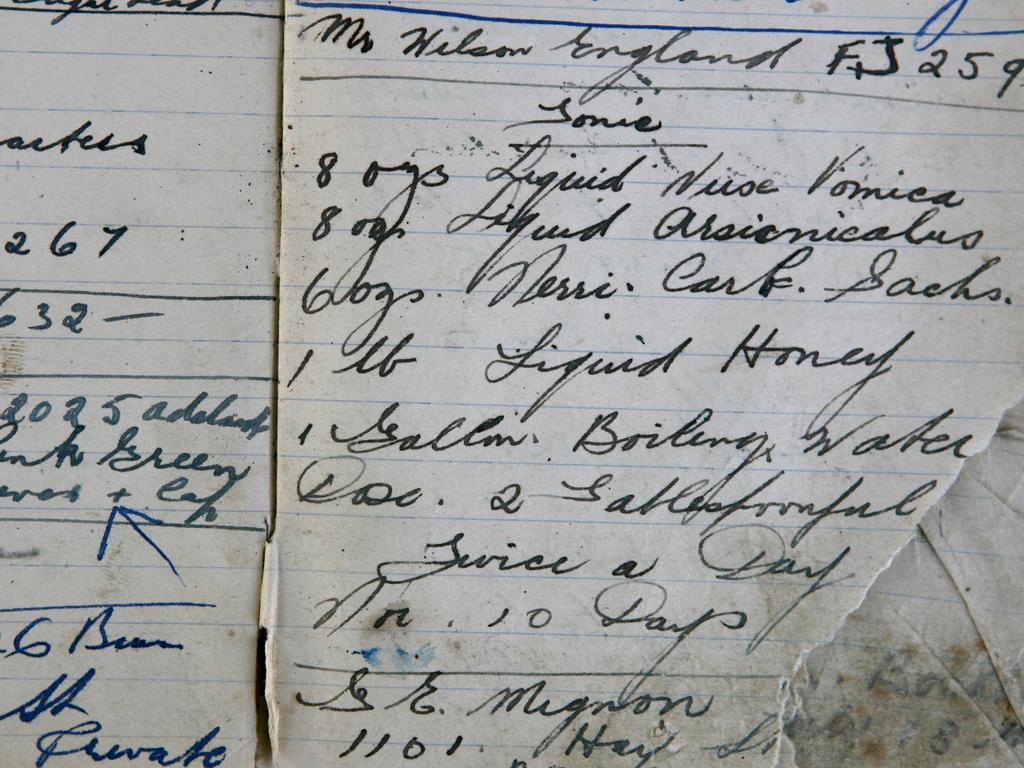 artess
267
632 —
2025 Adelaide
Green
+ Cap
6
St
Private
Mr Wilson England F+J 259
Tonic
8 ozs Liquid Nuse Vomica
8 ozs Liquid Arsienicalus
6 ozs. Nerri. Carb. Sachs.
1 lb Liquid Honey
1 Gallon. Boiling Water
Dose. 2 Tablespoonful
Twice a Day
For. 10 Days
G E. Mignon
1101. Hay St